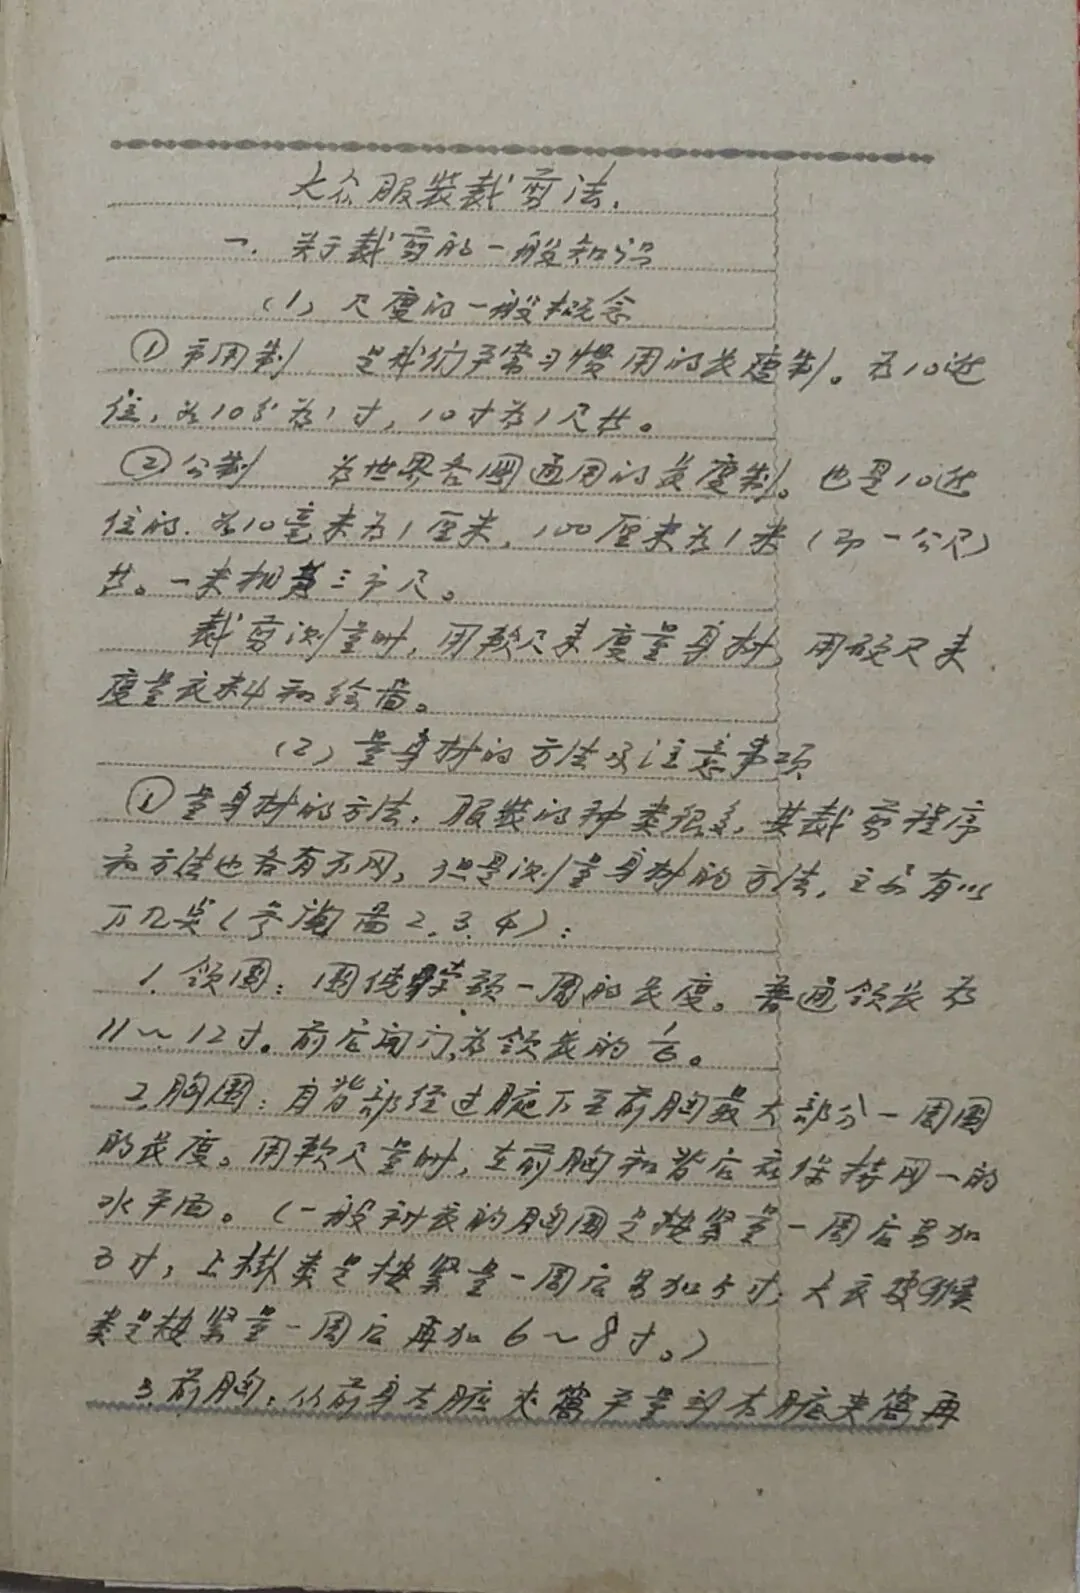 大众服装裁剪法.
一. 关于裁剪的一般知识
(1) 尺度的一般概念
①市用制 是我们平常习惯用的长度制。为10进
位, 如10分为1寸, 10寸为1尺共。
②公制 为世界各国通用的长度制。也是10进
位的. 如10毫米为1厘米, 100厘米为1米 (即一公尺)
共。一米相黄三市尺。
裁剪测量时, 用软尺来度量身材, 用硬尺来
度量衣料和绘图。
(2) 量身材的方法及注意事项
①量身材的方法, 服装的种类很多, 其裁剪程序
和方法也各有不同, 但是测量身材的方法, 主要有以
下几类(参阅图2.3.4):
1. 领围: 围绕颈一周的长度。普通领长为
11~12寸。前后开门,为领长的1/6。
2.胸围: 自背部经过腋下至前胸最大部分一周围
的长度。用软尺量时, 在前胸和背后应保持同一的
水平面。(一般衬衣的胸围是按紧量一周后另加
3寸, 上掛类是按紧量一周后另加5寸, 大衣
类是按紧量一周后再加6~8寸。)
3.前胸: 从前身左腋夹窩平量到右腋夹窩再